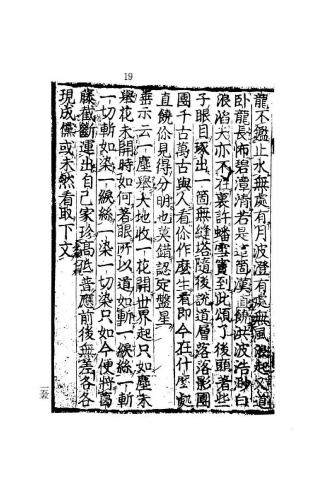 19
龍不鑑止水無處有月波澄有處無風浪起又道
臥龍長怖碧潭清若是這箇漢直饒洪波浩渺白
浪滔天亦不在裏許蟠雪竇到此頌了後頭著些
子眼目琢出一箇無縫塔隨後說道層落落影團
團千古萬古與人看你作麼生看即今在什麼處
直饒你見得分明也莫錯認定盤星
垂示云一塵舉大地收一花開世界起只如塵未
舉花未開時如何著眼所以道如斬一綟絲一斬
一切斬如染一綟絲一染一切染只如今便將葛
藤截斷運出自己家珍高低普應前後無差各各
現成儻或未然看取下文